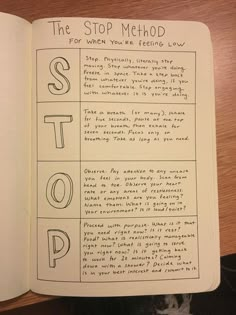 The STOP Method
For when you're feeling low
S
Stop. Physically, literally stop
moving. Stop whatever you're doing.
Freeze in space. Take a step back
from whatever you're doing, if you
feel comfortable. Stop engaging
with whatever is it you're doing.
T
Take a breath (or many). Inhale
for five seconds, pause at the top
of your breath, then exhale for
seven seconds. Focus only on
breathing. Take as long as you need.
O
Observe. Pay attention to any unease
you feel in your body. Scan from
head to toe. Observe your heart
rate or any areas of restlessness.
What emotions are you feeling?
Name them. What is going on in
your environment? Is it loud/noisy?
P
Proceed with purpose. What is it that
you need right now? Is it rest?
Food? What is realistically manageable
right now? What is going to serve
you right now? Is it getting back
to work for 20 minutes?
down
in your best interest and commit to it